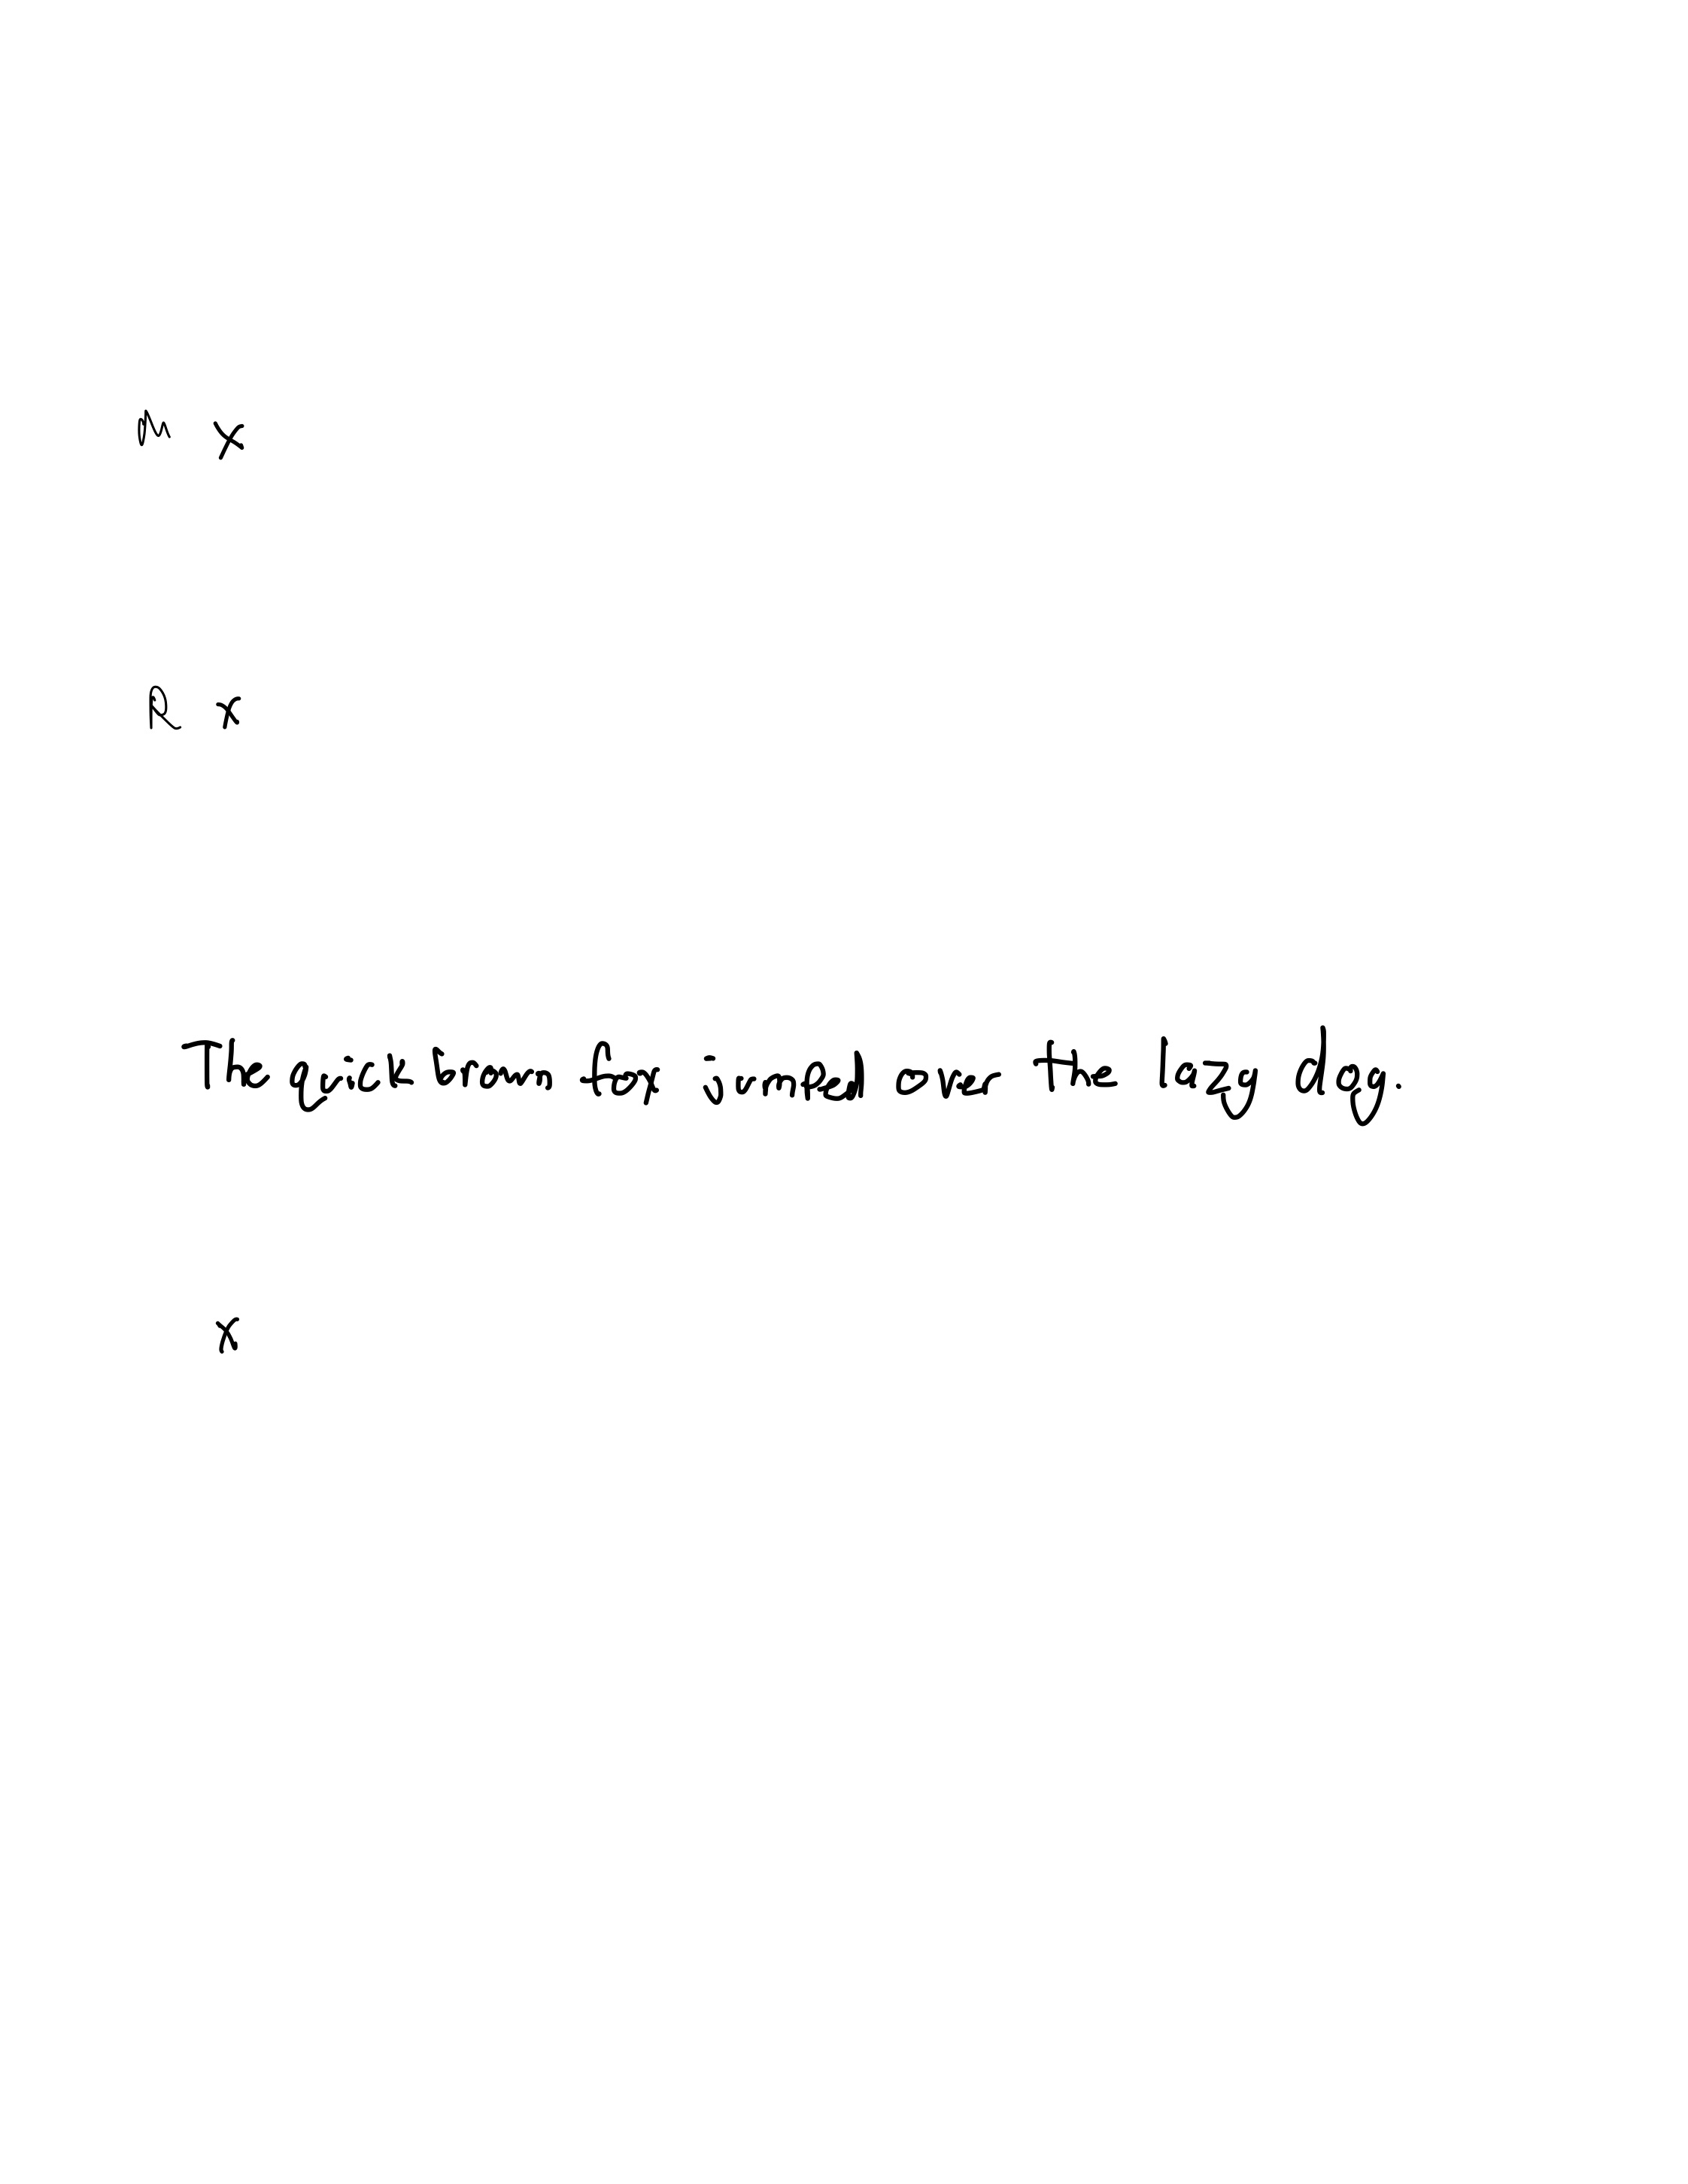 M X
R x
The quick brown fox jumped over the lazy dog.
x